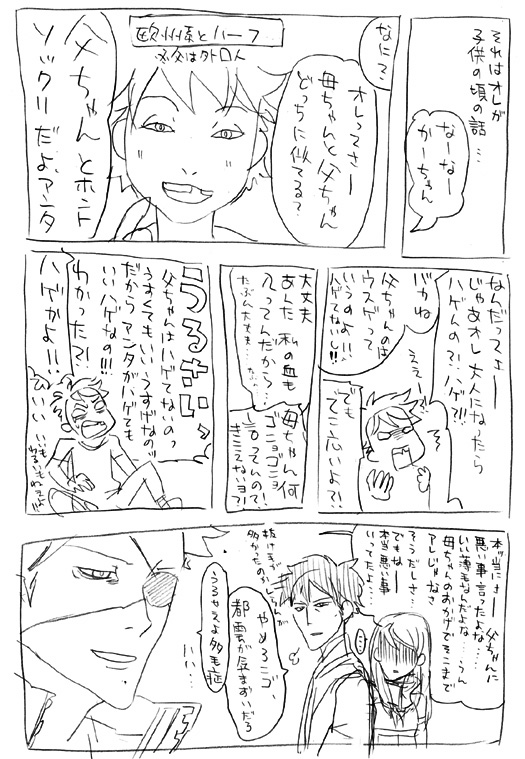 それはオレが
子供の頃の話…
なーなー
かーちゃん
なに？
欧州系とハーフ
父は外国人
オレってさー
母ちゃんと父ちゃん
どっちに似てる？
父ちゃんとホント
ソックリだよ、アンタ
なんだってェー
じゃあオレ 大人になったら
ハゲんの？！ハゲ？！！
バカね
父ちゃんのは
ウスゲって
いうのよ！！
ハゲてないし！！
ええー
でも
でこ広いよ？！
大丈夫
あんた 私の血も
入ってんだから…
たぶん大丈夫…た…
母ちゃん何
ゴニョゴニョ
言ってんの？！
きこえないヨ？！
うるさいッ
父ちゃんはハゲてないのっ
うすくてもいいうすげなのッ
だからアンタがハゲても
いいハゲなの！！！
わかった？！
ハゲかよ！！
ひいい
本当にさー 父ちゃんに
悪い事言ったよな…
いい薄毛なんだよな……うん
アレじゃなさ
母ちゃんのおかげでそこまで
そうださ…
でもねー
本当悪い事
いってたよ…
抜け毛が
多かったのかしらんが
やめろニゴ、
都雲が気まずいだろ
うるせえよ多毛症